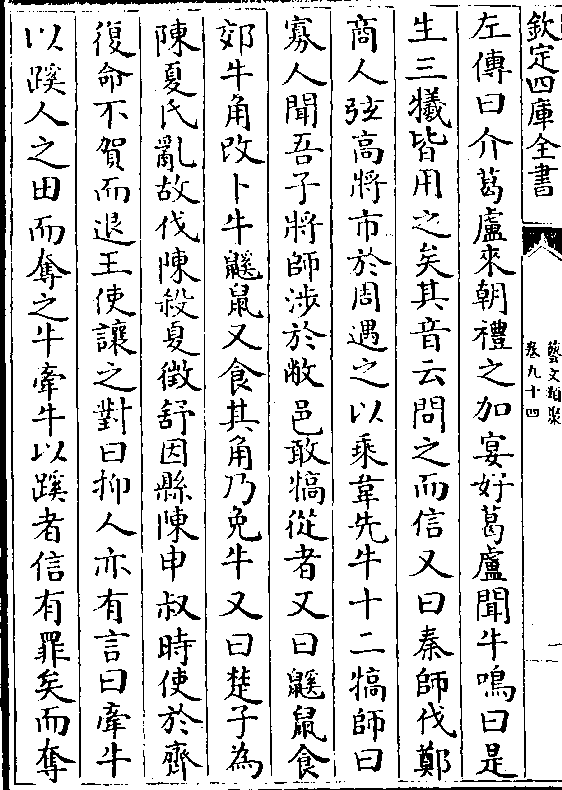 欽定四庫全書
藝文類聚
卷九十四
一
左傳曰介葛盧來朝禮之加宴好葛盧聞牛鳴曰是
生三犧皆用之矣其音云問之而信又曰秦師伐鄭
商人弦高將市於周遇之以乘韋先牛十二犒師曰
寡人聞吾子將師涉於敝邑敢犒從者又曰鼷鼠食
郊牛角改卜牛鼷鼠又食其角乃免牛又曰楚子為
陳夏氏亂故伐陳殺夏徵舒因縣陳申叔時使於齊
復命不賀而退王使讓之對曰抑人亦有言曰牽牛
以蹊人之田而奪之牛牽牛以蹊者信有罪矣而奪